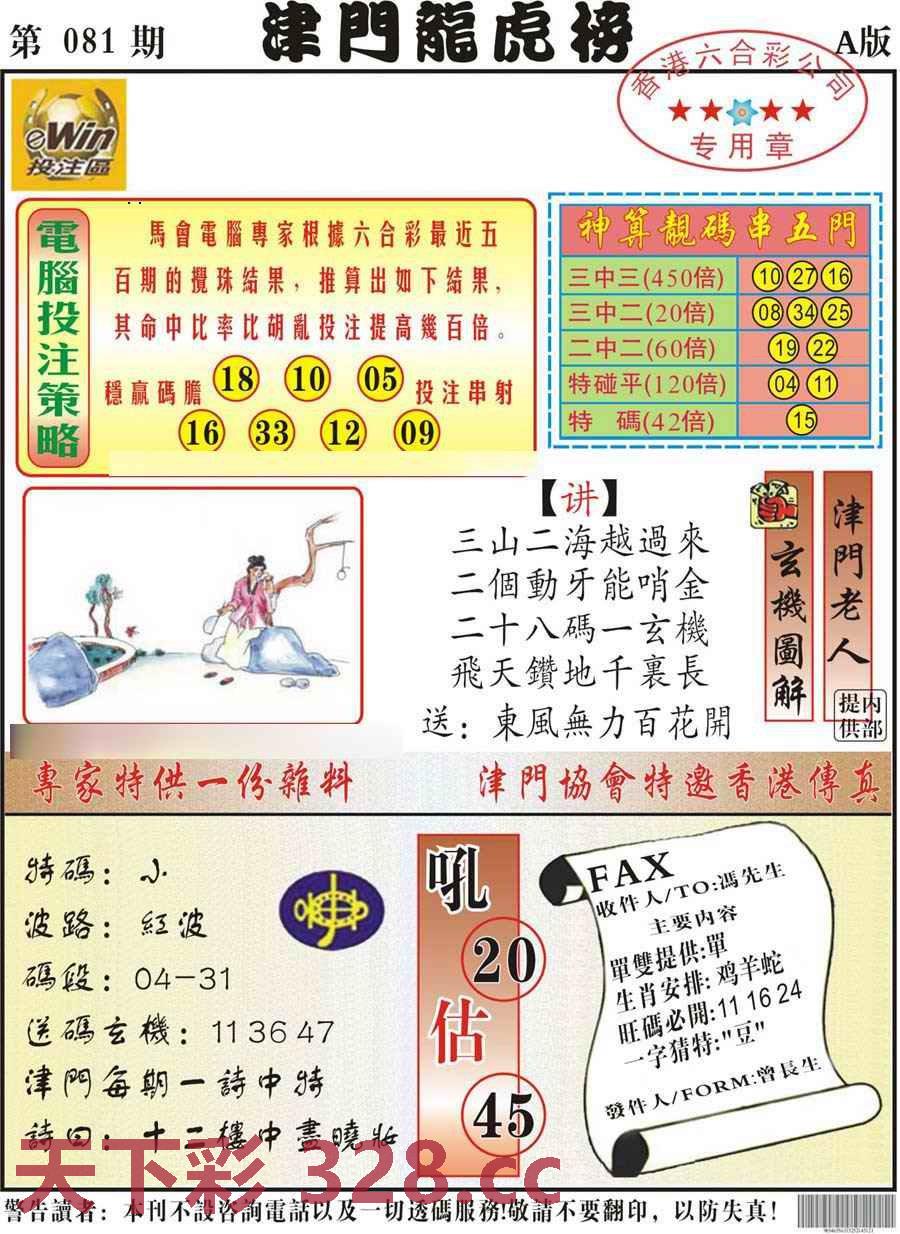 第 081 期
津門龍虎榜
A版
香港六合彩公司
专用章
eWin
投注區
電腦投注策略
馬會電腦專家根據六合彩最近五
百期的攪珠結果，推算出如下結果，
其命中比率比胡亂投注提高幾百倍。
穩贏碼膽 18 10 05 投注串射
16 33 12 09
神算靚碼串五門
三中三(450倍) 10 27 16
三中二(20倍) 08 34 25
二中二(60倍) 19 22
特碰平(120倍) 04 11
特 碼(42倍) 15
【讲】
三山二海越過來
二個動牙能哨金
二十八碼一玄機
飛天鑽地千裏長
送：東風無力百花開
玄機圖解
津門老人
内部提供
專家特供一份雜料
津門協會特邀香港傳真
特碼：小
波路：紅波
碼段：04-31
送碼玄機：11 36 47
津門每期一詩中特
詩曰：十二樓中盡曉妝
吼
20
估
45
FAX
收件人/TO:馮先生
主要内容
單雙提供:單
生肖安排:鸡羊蛇
旺碼必開:11 16 24
一字猜特:"豆"
發件人/FORM:曾長生
天下彩 328.cc
警告讀者：本刊不設咨詢電話以及一切透碼服務!敬請不要翻印，以防失真!